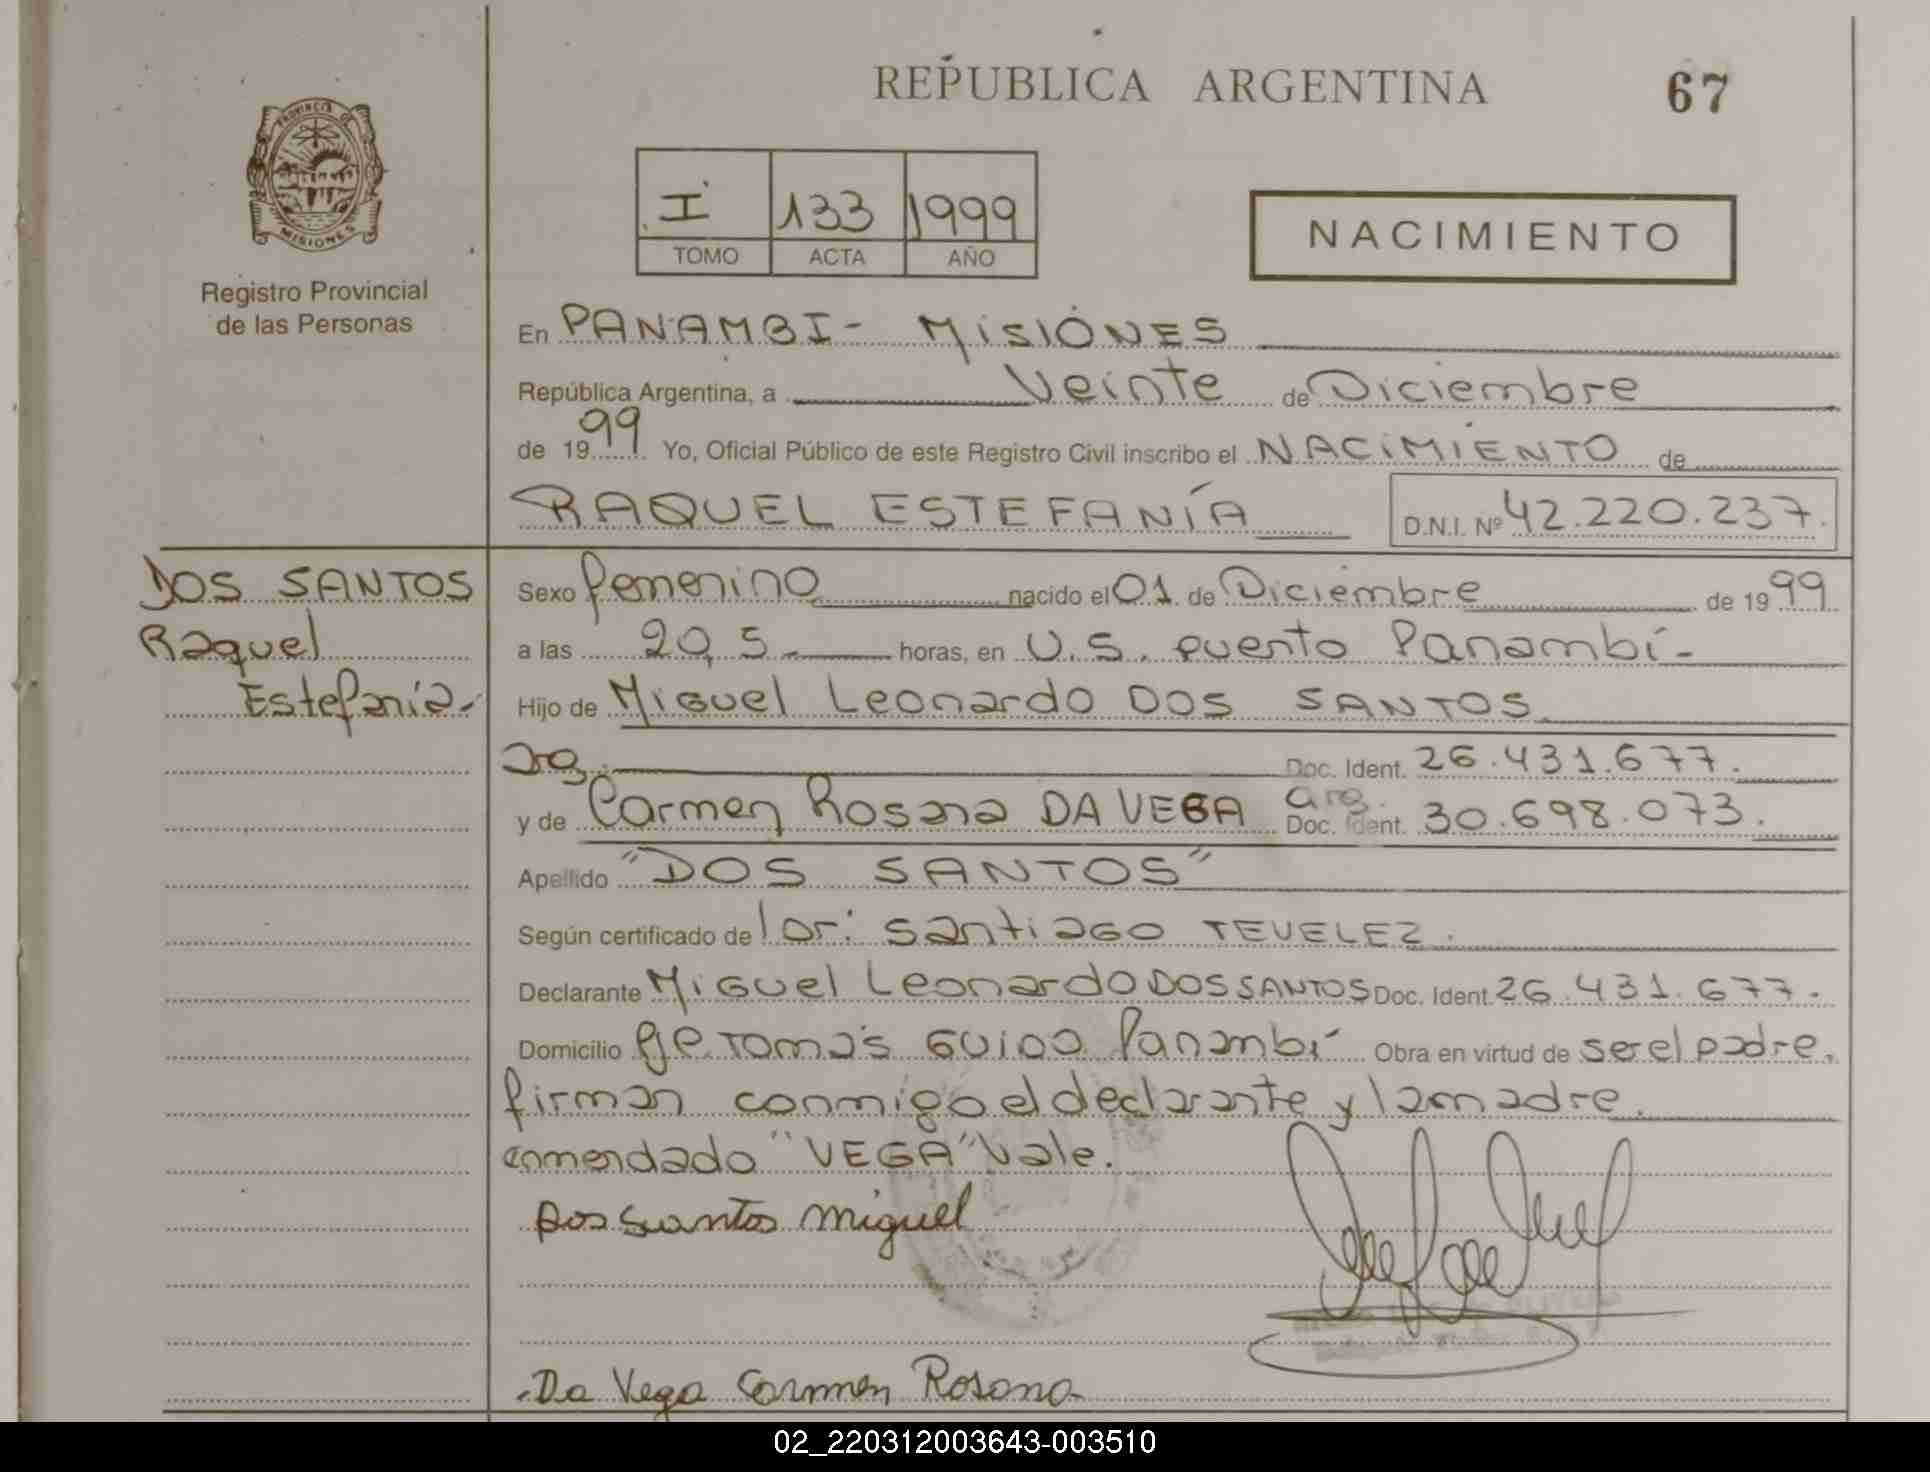 REPUBLICA ARGENTINA
67
PROVINCIA DE
MISIONES
Registro Provincial
de las Personas
I 133 1999
TOMO ACTA AÑO
NACIMIENTO
En PANAMBI - MISIONES
República Argentina, a Veinte de Diciembre
de 1999 Yo, Oficial Público de este Registro Civil inscribo el NACIMIENTO de
RAQUEL ESTEFANÍA D.N.I. Nº 42.220.237.
DOS SANTOS
Raquel
Estefanía.
Sexo femenino nacido el 01 de Diciembre de 1999
a las 20,5 horas, en U.S. puerto Panambí-
Hijo de Miguel Leonardo DOS SANTOS
arg. Doc. Ident. 26.431.677.
y de Carmen Rosana DA VEGA arg. Doc. Ident. 30.698.073.
Apellido "DOS SANTOS"
Según certificado de Santiago TEVELEZ.
Declarante Miguel Leonardo DOS SANTOS Doc. Ident. 26.431.677.
Domicilio Pje. Tomás Guido Panambí Obra en virtud de ser el padre.
firman conmigo el declarante y la madre.
enmendado "VEGA" Vale.
Dos Santos Miguel
Da Vega Carmen Rosana
02_220312003643-003510